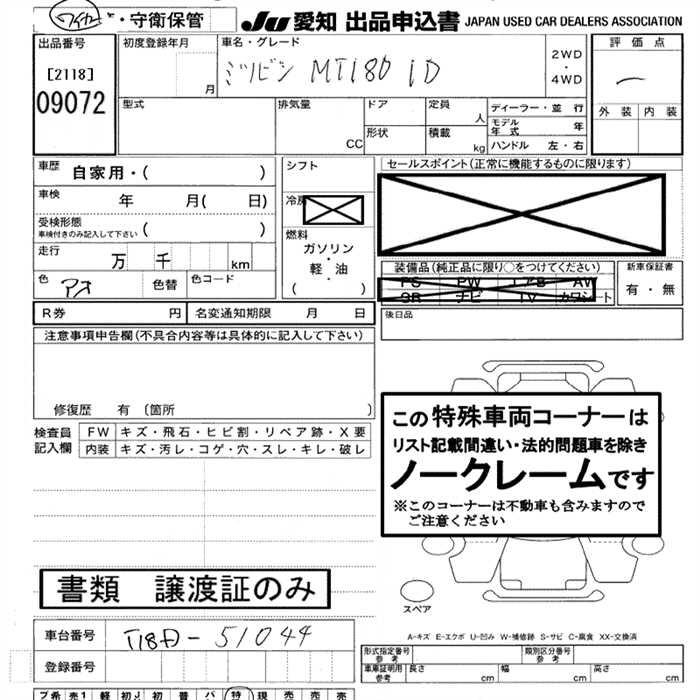 ワイカー・守衛保管
JU 愛知 出品申込書 JAPAN USED CAR DEALERS ASSOCIATION
出品番号
[2118]
09072
初度登録年月
月
車名・グレード
ミツビシ MT180 1D
2WD
・
4WD
評価点
外装 内装
型式
排気量
CC
ドア
形状
定員
人
積載
kg
ディーラー・並行
モデル年式 年
ハンドル 左・右
車歴 自家用・( )
車検 年 月( 日)
受検形態
車検付きのみ記入して下さい ( )
走行 万 千 km
色 アオ 色替 色コード
R券 円 名変通知期限 月 日
シフト
冷房
燃料
ガソリン
・
軽・油
( )
セールスポイント(正常に機能するものに限ります)
装備品(純正品に限り○をつけてください)
PS PW エアB AW
SR ナビ TV カワシート
新車保証書
有・無
後日品
注意事項申告欄(不具合内容等は具体的に記入して下さい)
修復歴 有 〔箇所 〕
検査員
記入欄
FW キズ・飛石・ヒビ割・リペア跡・X要
内装 キズ・汚レ・コゲ・穴・スレ・キレ・破レ
この特殊車両コーナーは
リスト記載間違い・法的問題車を除き
ノークレームです
※このコーナーは不動車も含みますので
ご注意ください
書類 譲渡証のみ
スペア
A-キズ E-エクボ U-凹み W-補修跡 S-サビ C-腐食 XX-交換済
車台番号 T18D-51044
登録番号
形式指定番号
参考
類別区分番号
参考
車庫証明用
参考
長さ cm 幅 cm 高さ cm